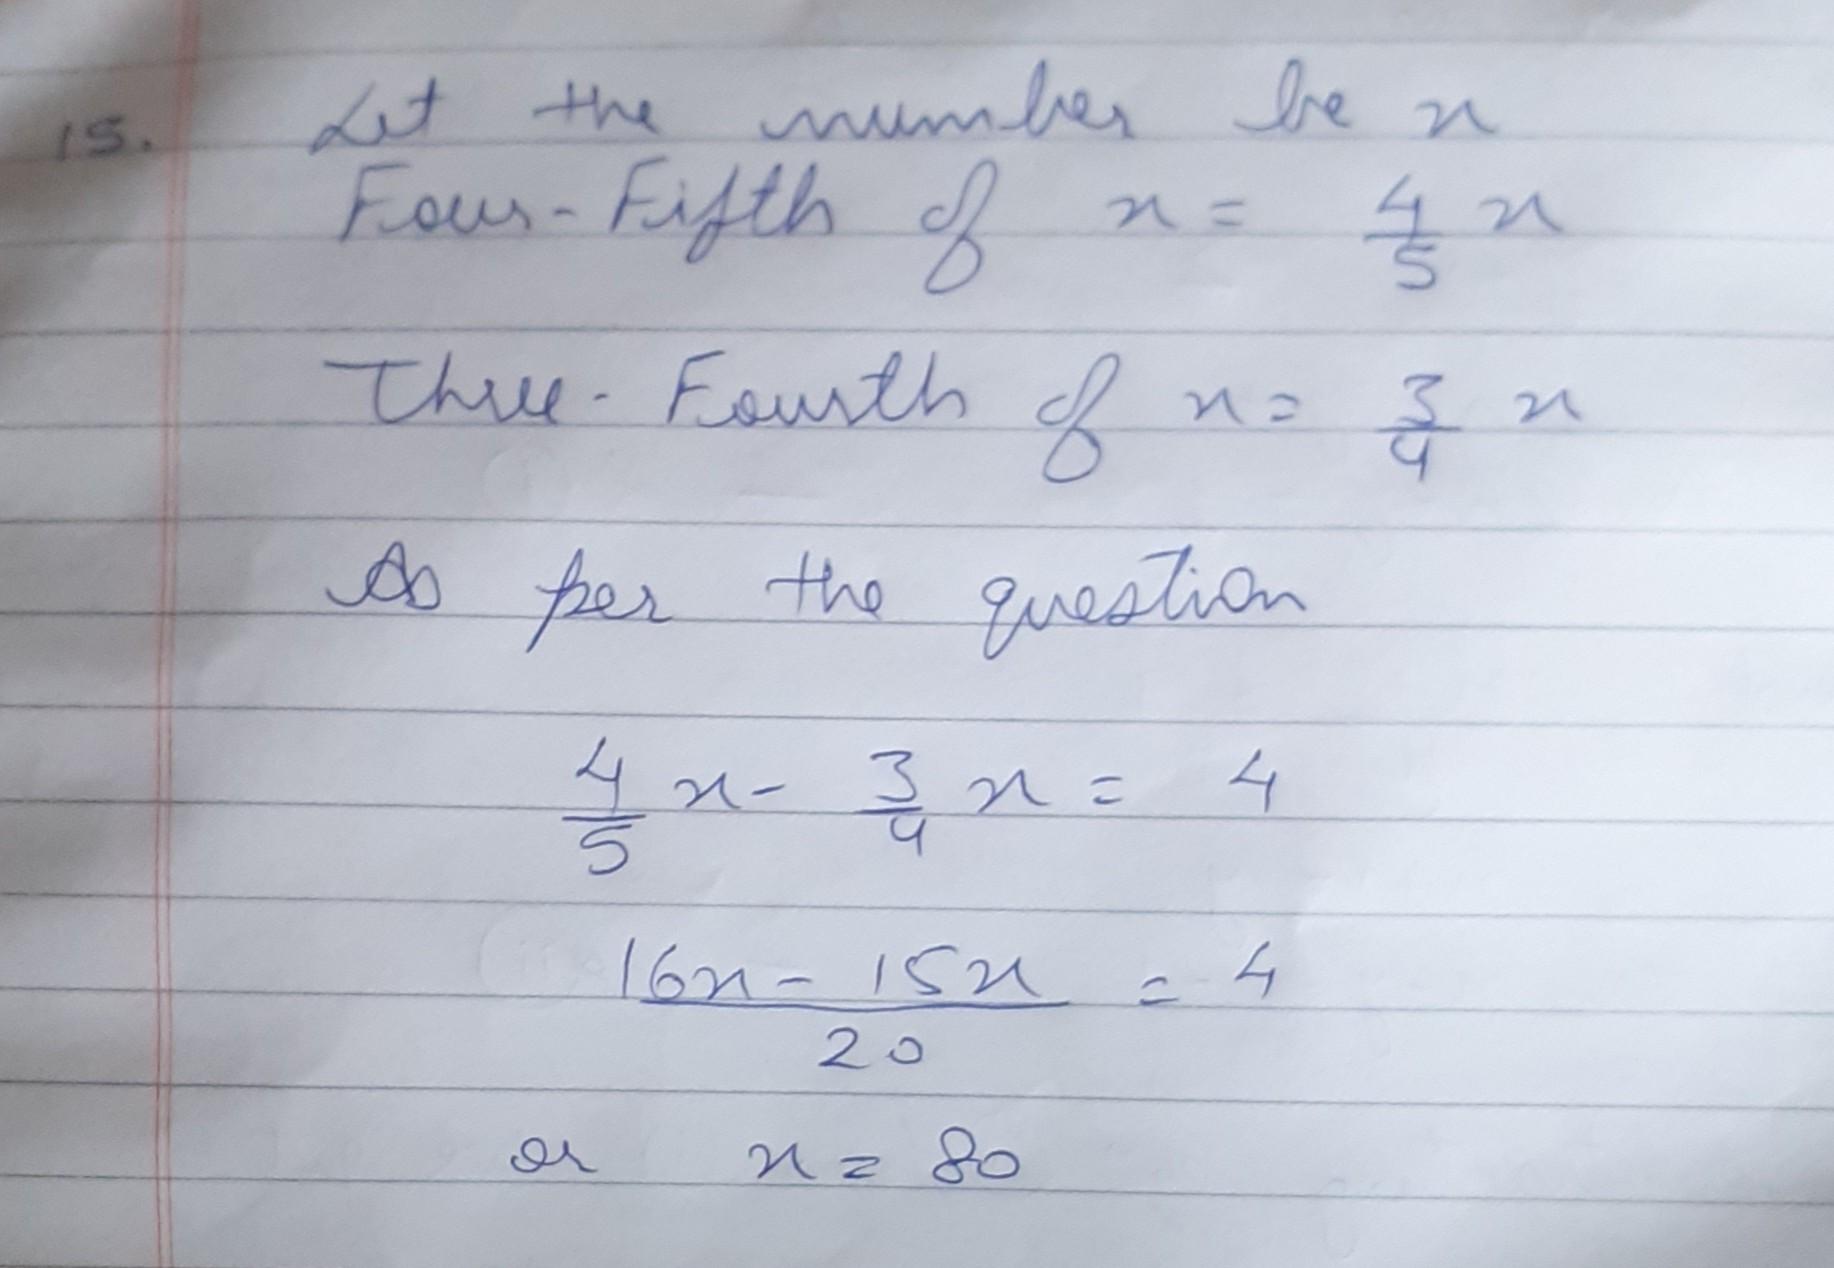 15. Let the number be x
Four-Fifth of x = 4/5 x
Three-Fourth of x = 3/4 x
As per the question
4/5 x - 3/4 x = 4
16x - 15x / 20 = 4
or x = 80